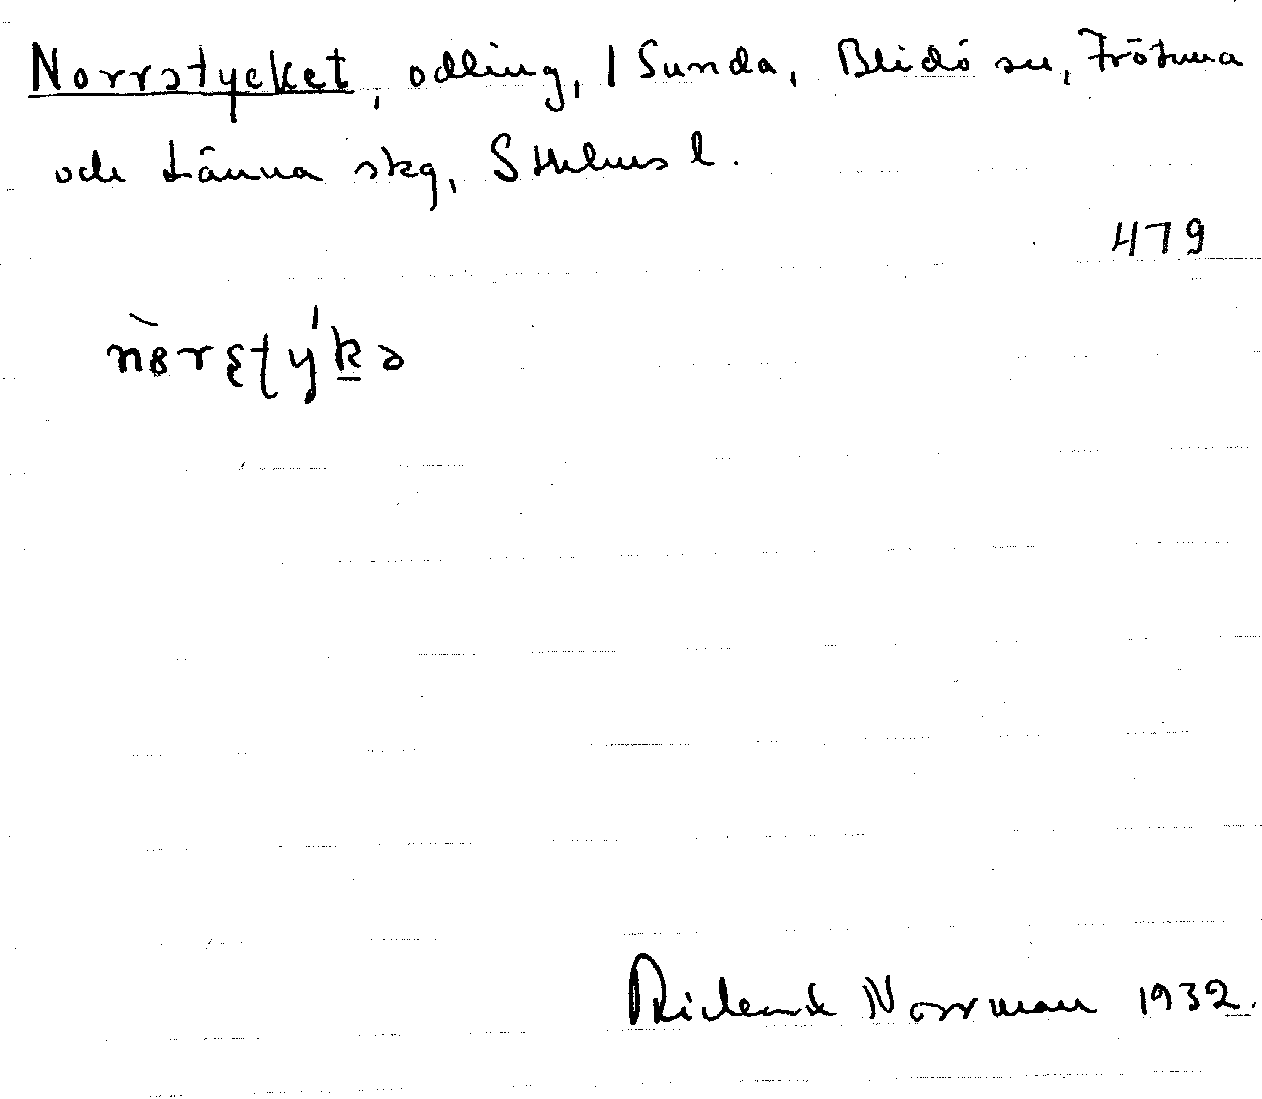 Norrstycket, odling, / Sunda, Blidö sn, Frötuna
och Länna skg, Sthlms l.
479
Rickard Norrman 1932.